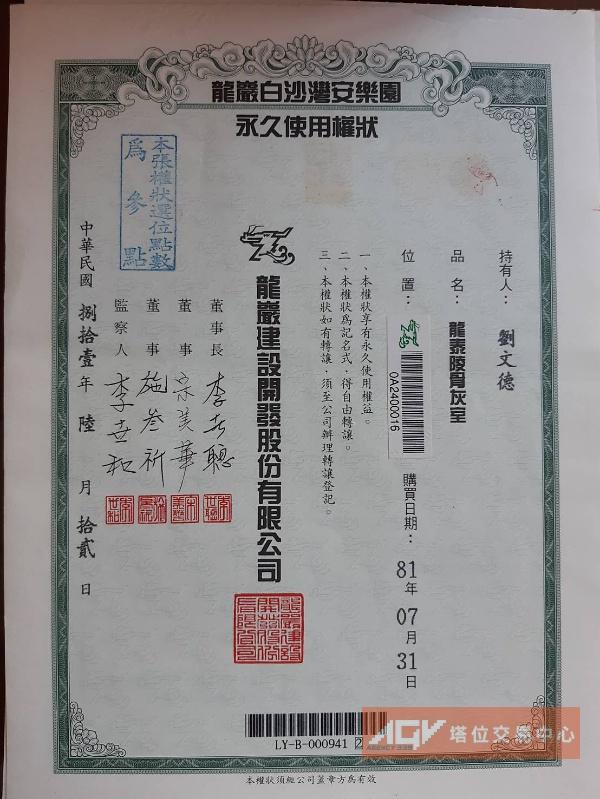 龍巖白沙灣安樂園
永久使用權狀
持有人：劉文德
品名：龍泰陵骨灰室
位置：
0A2400016
購買日期：81年07月31日
一、本權狀享有永久使用權益。
二、本權狀為記名式，得自由轉讓。
三、本權狀如有轉讓，須至公司辦理轉讓登記。
龍巖建設開發股份有限公司
董事長
董事
董事 施叁祈
監察人 李幸和
本張權狀選位點數
為參點
中華民國捌拾壹年陸月拾貳日
LY-B-000941 2
本權狀須經公司蓋章方為有效
AGV 塔位交易中心